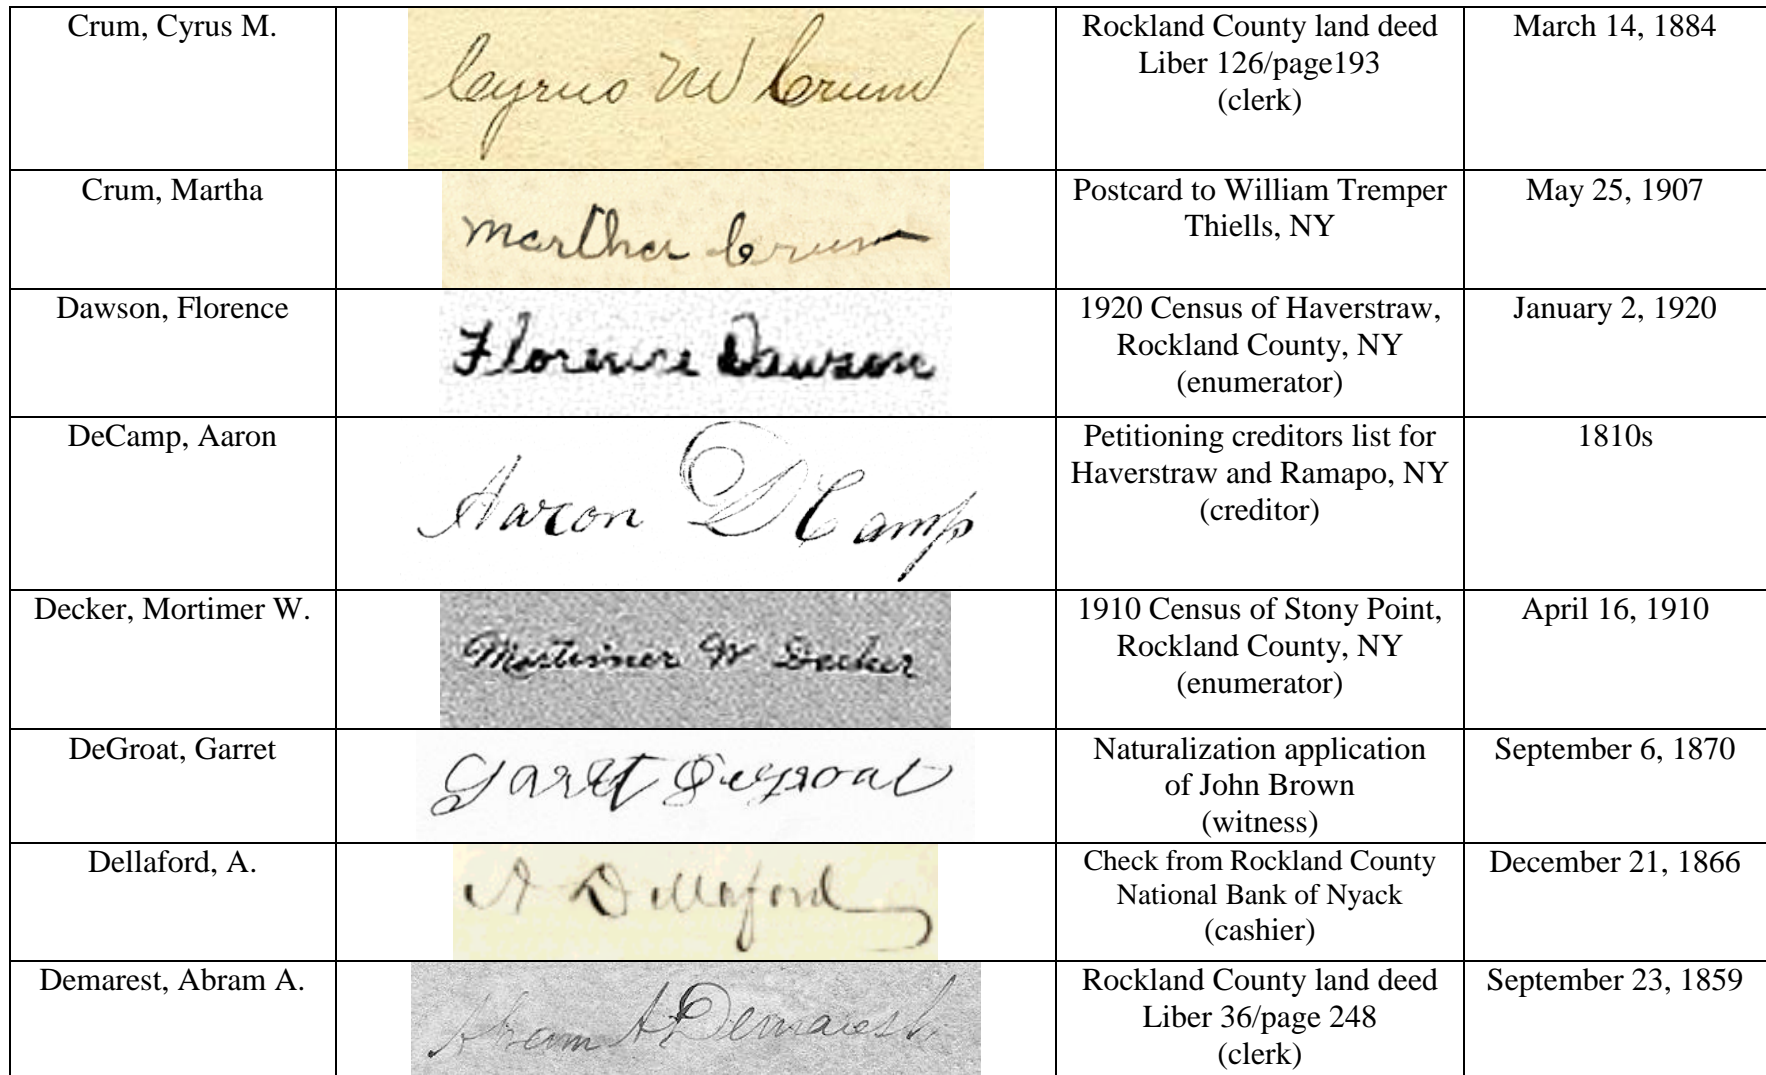 Crum, Cyrus M.
Cyrus M Crum
Rockland County land deed
Liber 126/page193
(clerk)
March 14, 1884
Crum, Martha
Martha Crum
Postcard to William Tremper
Thiells, NY
May 25, 1907
Dawson, Florence
Florence Dawson
1920 Census of Haverstraw,
Rockland County, NY
(enumerator)
January 2, 1920
DeCamp, Aaron
Aaron DCamp
Petitioning creditors list for
Haverstraw and Ramapo, NY
(creditor)
1810s
Decker, Mortimer W.
Mortimer W Decker
1910 Census of Stony Point,
Rockland County, NY
(enumerator)
April 16, 1910
DeGroat, Garret
Garet Degroat
Naturalization application
of John Brown
(witness)
September 6, 1870
Dellaford, A.
A Dellaford
Check from Rockland County
National Bank of Nyack
(cashier)
December 21, 1866
Demarest, Abram A.
Abram A Demarest
Rockland County land deed
Liber 36/page 248
(clerk)
September 23, 1859